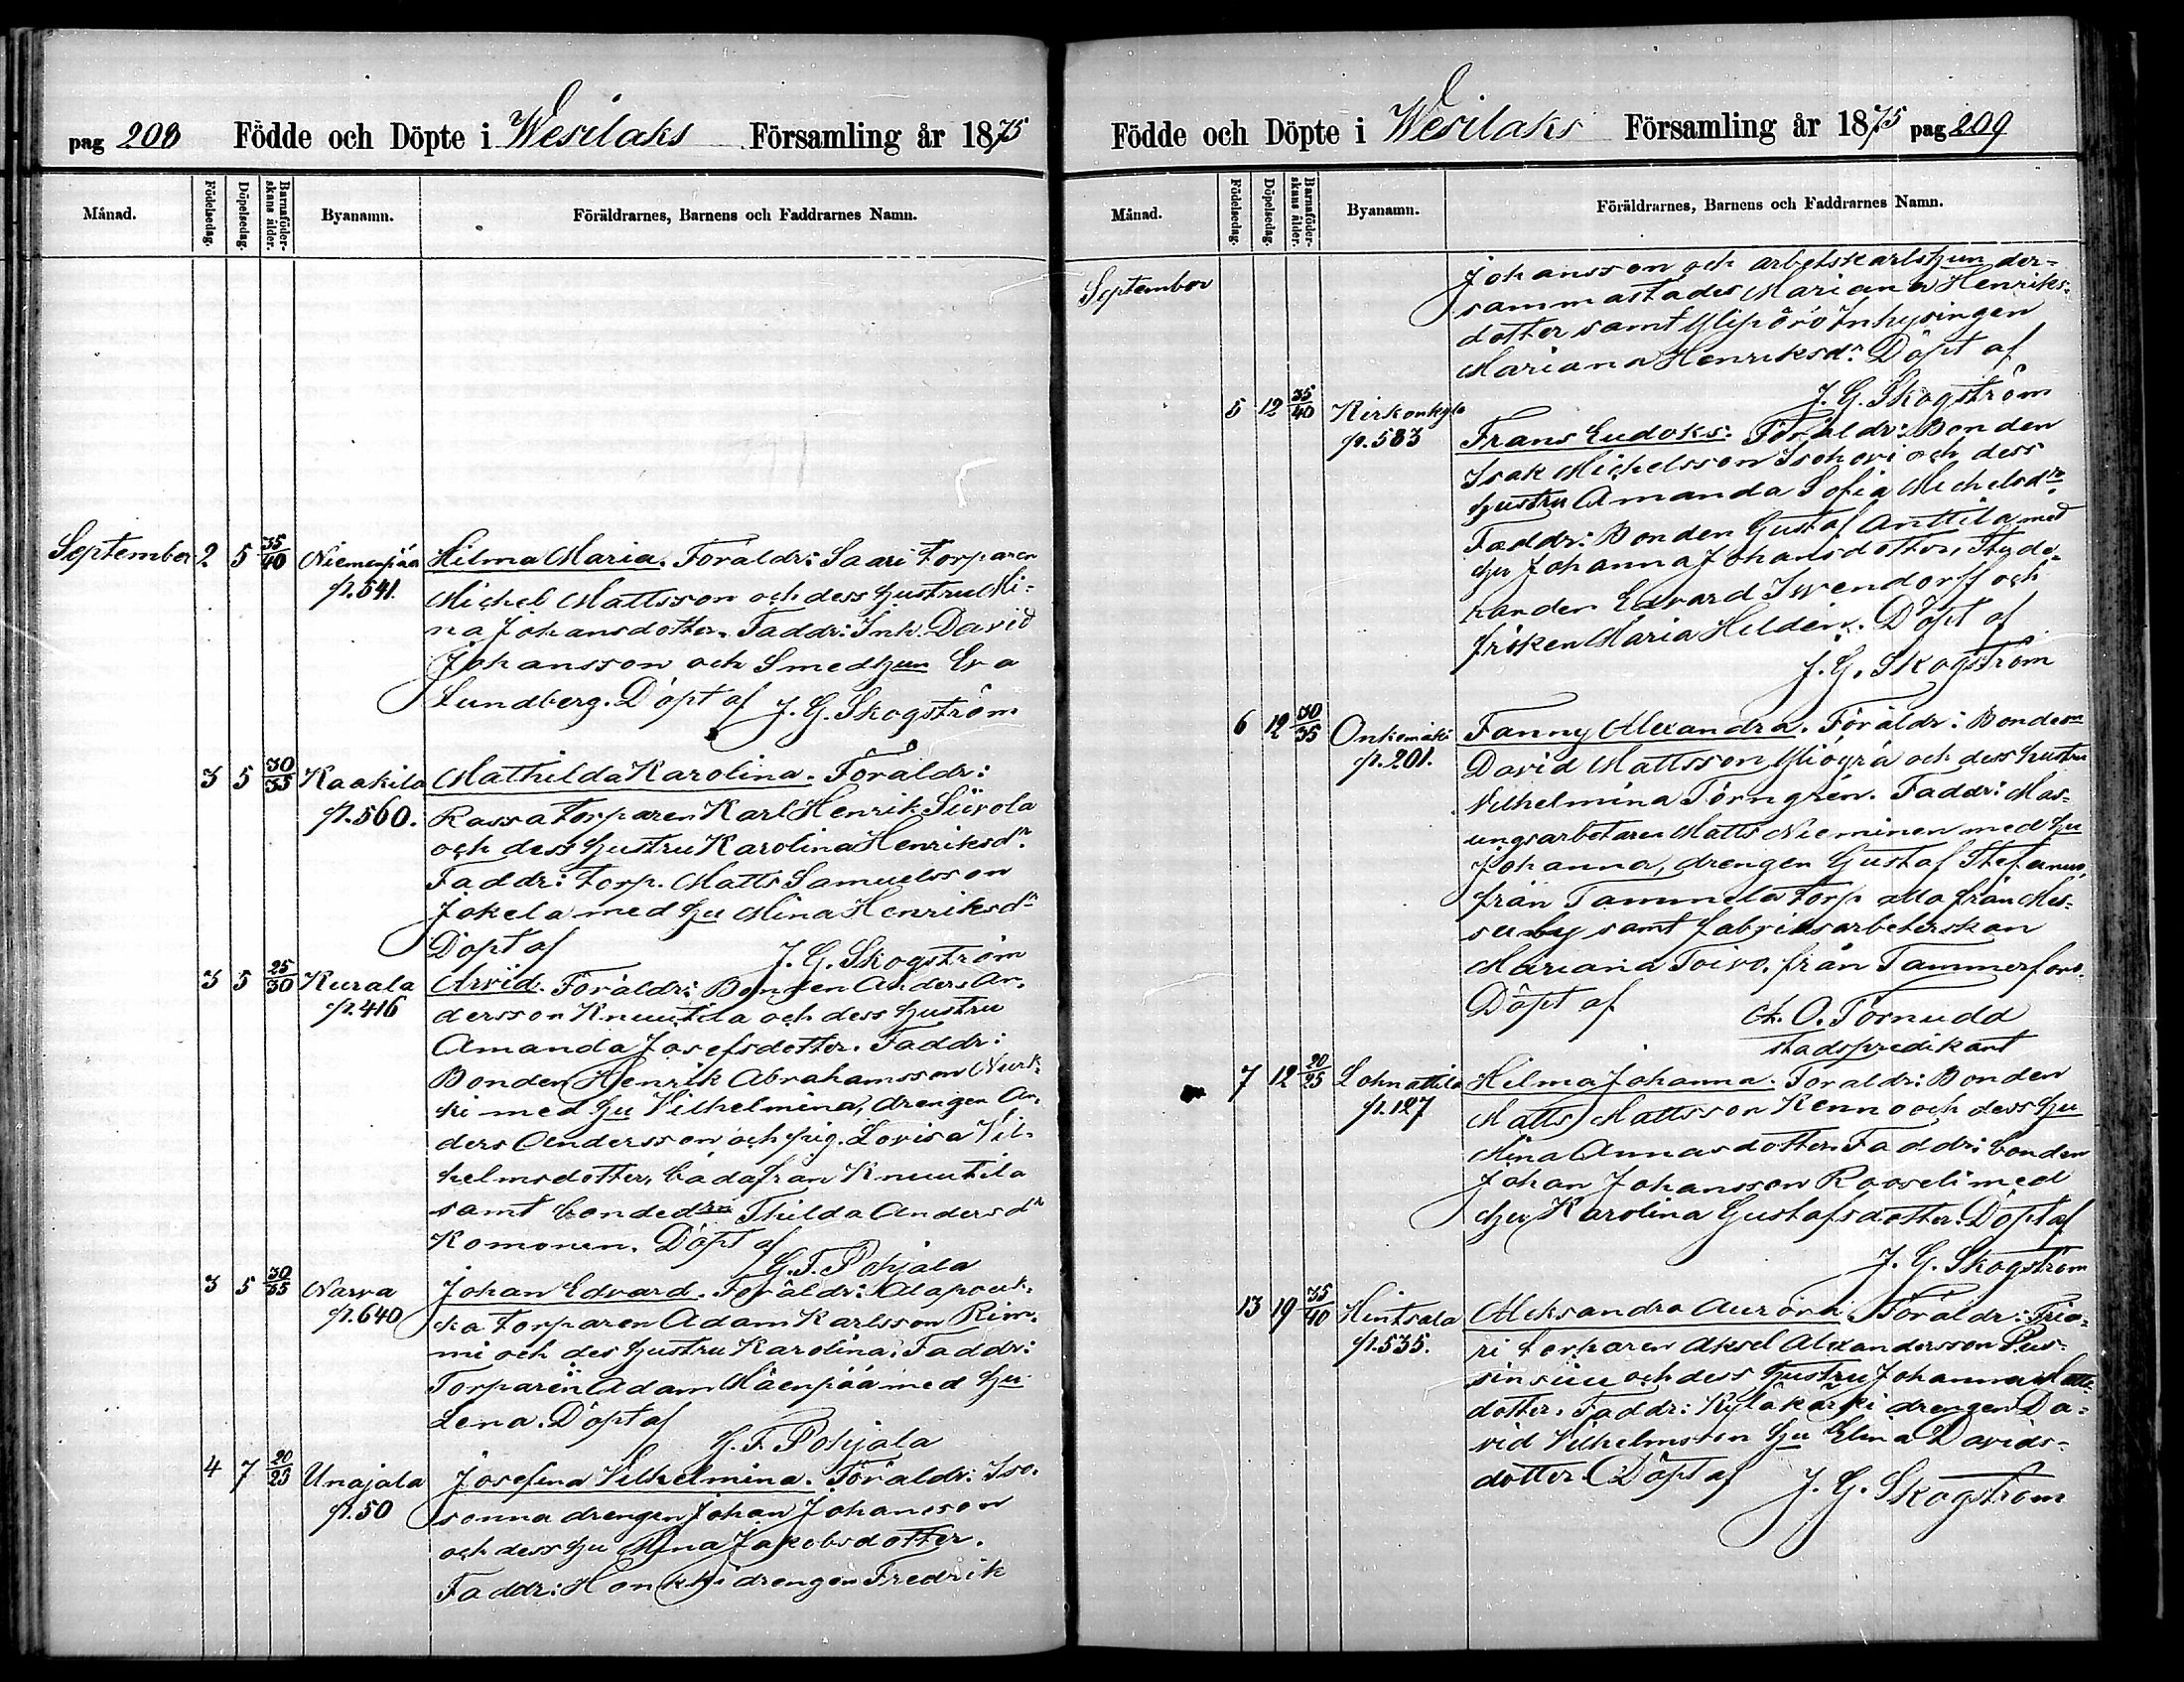 pag 208 Födde och Döpte i Wesilaks Församling år 1875
Månad. Födelsedag. Döpelsedag. Barnaföderskans ålder. Byanamn. Föräldrarnes, Barnens och Faddrarnes Namn.
September 2 5 35/40 Niemenpää Hilma Maria. Föräldr: Saari torparen
p. 541. Michel Mattsson och dess hustru Mi-
na Johansdotter. Faddr: Inh. David
Johansson och Smedhun Eva
Lundberg. Döpt af J. G. Skogström
3 5 30/35 Kaakila Mathilda Karolina. Föräldr:
p. 560. Rassa torparen Karl Henrik Siivola
och dess hustru Karolina Henriksdr.
Faddr: torp. Matts Samuelsson
Jokela med hu Mina Henriksdr
Döpt af J. G. Skogström
3 5 25/30 Kurala Arvid. Föräldr: Bonden Anders An-
p. 416 dersson Knuutila och dess hustru
Amanda Josefsdotter. Faddr:
Bonden Henrik Abrahamsson Nurk-
ki med hu Vilhelmina, drengen An-
ders Andersson och pig. Lovisa Vil-
helmsdotter, båda från Knuutila
samt bonded Thilda Andersdr
Komonen. Döpt af
G. F. Pohjala
3 5 30/35 Narva Johan Edvard. Föräldr: Alapouk-
p. 640 ka torparen Adam Karlsson Rim-
mi och des hustru Karolina. Faddr:
Torparen Adam Mäenpää med hu
Lena. Döpt af
G. F. Pohjala
4 7 20/25 Unajala Josefina Vilhelmina. Föräldr: Iso-
p. 50 sonna drengen Johan Johansson
och dess hu Mina Jakobsdotter.
Faddr: Honkki drengen Fredrik
Födde och Döpte i Wesilaks Församling år 1875 pag 209
Månad. Födelsedag. Döpelsedag. Barnaföderskans ålder. Byanamn. Föräldrarnes, Barnens och Faddrarnes Namn.
September Johansson och arbetskarlshun der-
sammastädes Mariana Henriks-
dotter samt Inhysingen
Mariana Henriksdr. Döpt af
J. G. Skogström
5 12 35/40 Kirkonkylä
p. 583 Frans Eudoks. Föräldr: Bonden
Isak Michelsson Isohovi och dess
hustru Amanda Sofia Michelsdr.
Faddr: Bonden Gustaf Anttila med
hu Johanna Johansdotter, Stude-
randen Edvard Svendorff och
fröken Maria Heldén. Döpt af
J. G. Skogström
6 12 30/35 Onkemäki Fanny Alexandra. Föräldr: Bonden
p. 201. David Mattsson och dess hustru
Vilhelmina Törngren. Faddr: Mas-
ungsarbetaren Matts Nieminen med hu
Johanna, drengen Gustaf Stefanus,
från Tammela torp alla från Mes-
suby samt fabriksarbeterskan
Mariana Toivo, från Tammerfors.
Döpt af A. O. Törnudd
stadspredikant
7 12 20/25 Lohnattila Hilma Johanna. Föräldr: Bonden
p. 127 Matts Mattsson Kenno och dess hu
Mina Annasdotter. Faddr: bonden
Johan Johansson Rooseli med
hu Karolina Gustafsdotter. Döpt af
J. G. Skogström
13 19 35/40 Hintsala Aleksandra Aurora. Föräldr: Prio-
p. 535. ri torparen Aksel Alexandersson Pus-
och dess hustru Johanna Matts-
dotter. Faddr: Kyläkärki drengen Da-
vid Vilhelmsson hu Elina Davids-
dotter. Döpt af J. G. Skogström